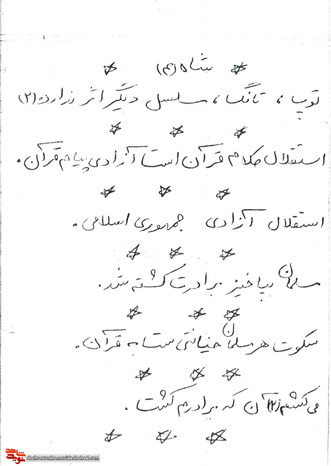 شاه (۴)
توپ، تانک، مسلسل دیگر اثر ندارد (۲)
استقلال کلام قرآن است آزادی پیام قرآن.
استقلال آزادی جمهوری اسلامی.
مسلمان بپاخیز برادرت کشته شد.
سکوت هر مسلمان خیانتی ست به قرآن.
می کشم (۲) آن که برادرم کشت.